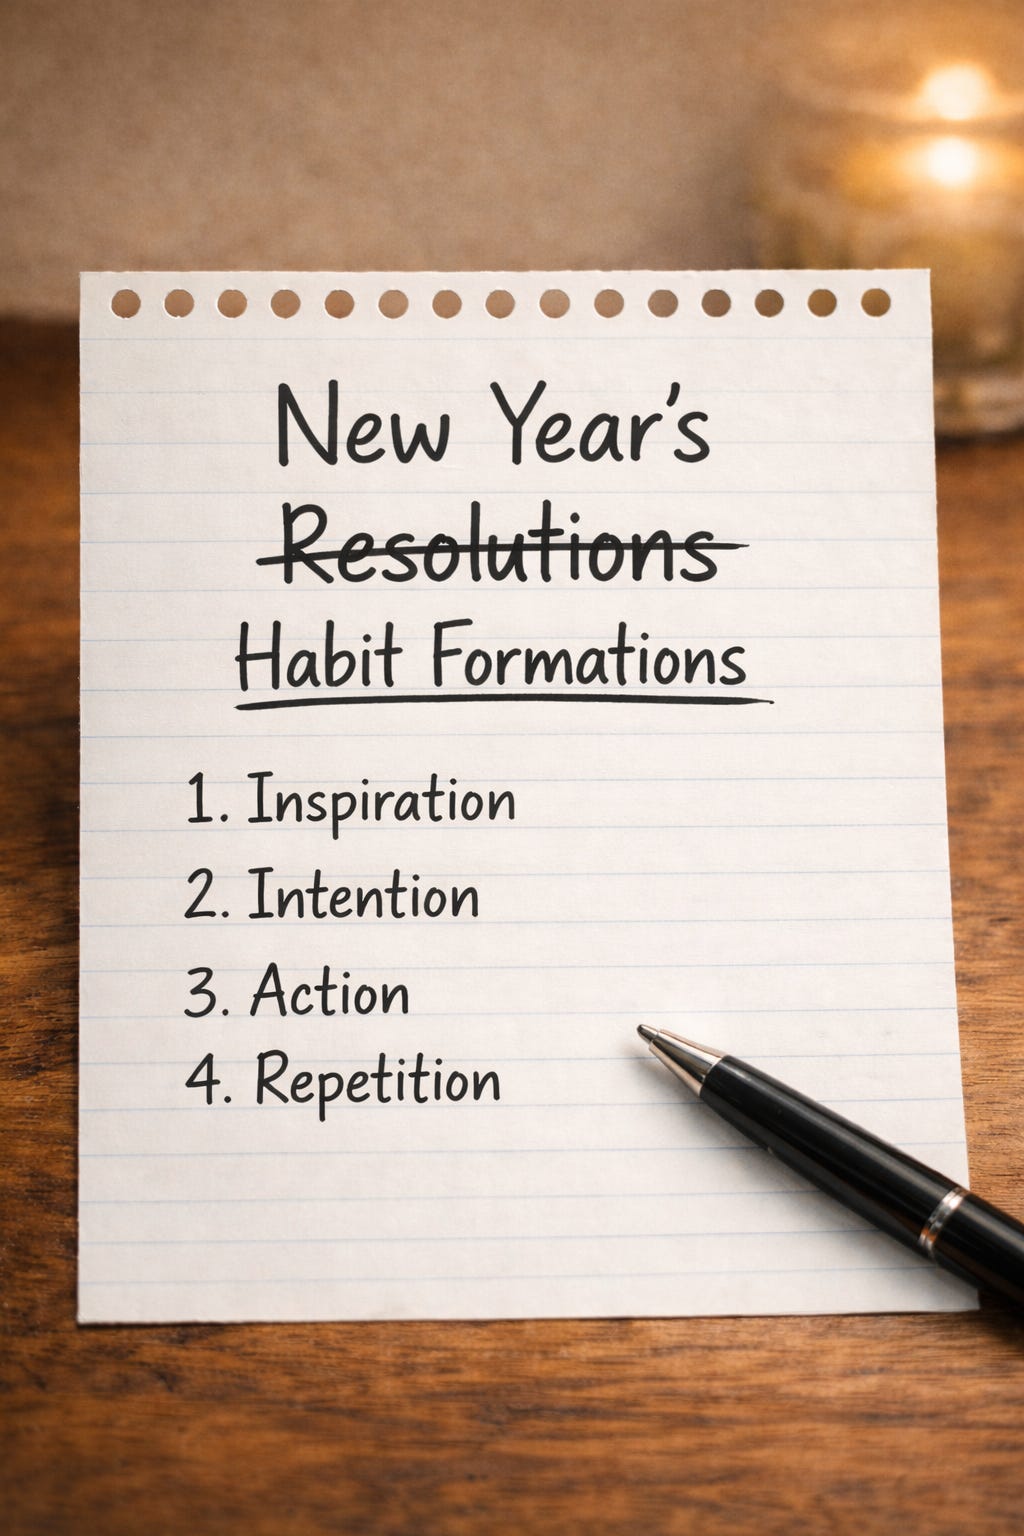 New Year's
Resolutions
Habit Formations
1. Inspiration
2. Intention
3. Action
4. Repetition